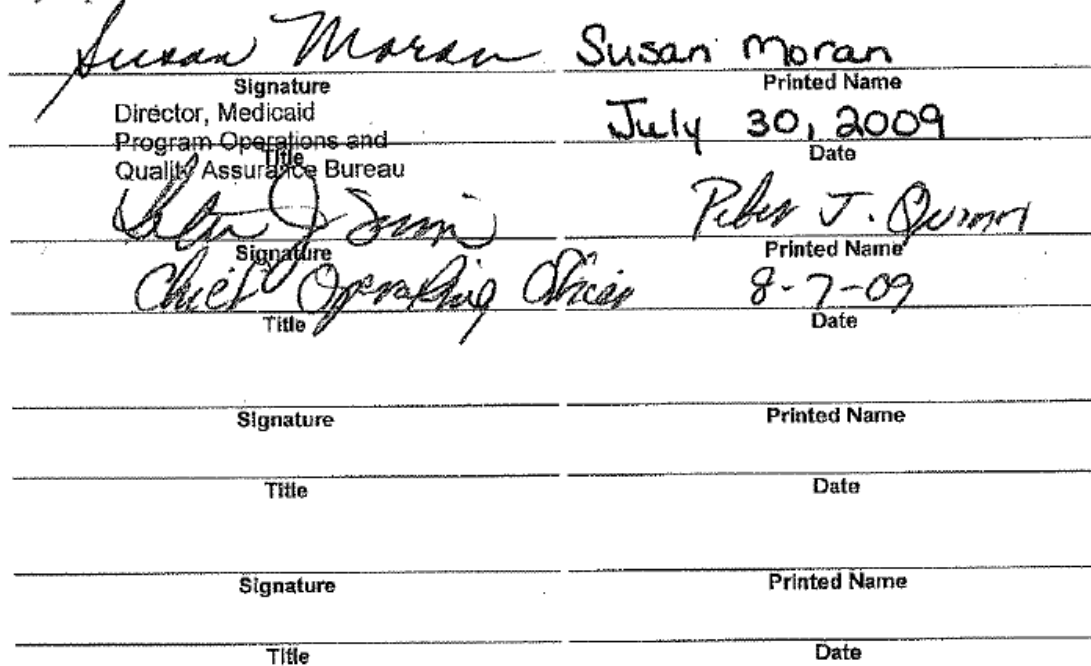 Susan Moran Susan Moran
Signature Printed Name
Director, Medicaid
Program Operations and July 30, 2009
Title Date
Quality Assurance Bureau
Peter J. Quinn Peter J. Quinn
Signature Printed Name
Chief Operating Officer 8-7-09
Title Date
Signature Printed Name
Title Date
Signature Printed Name
Title Date